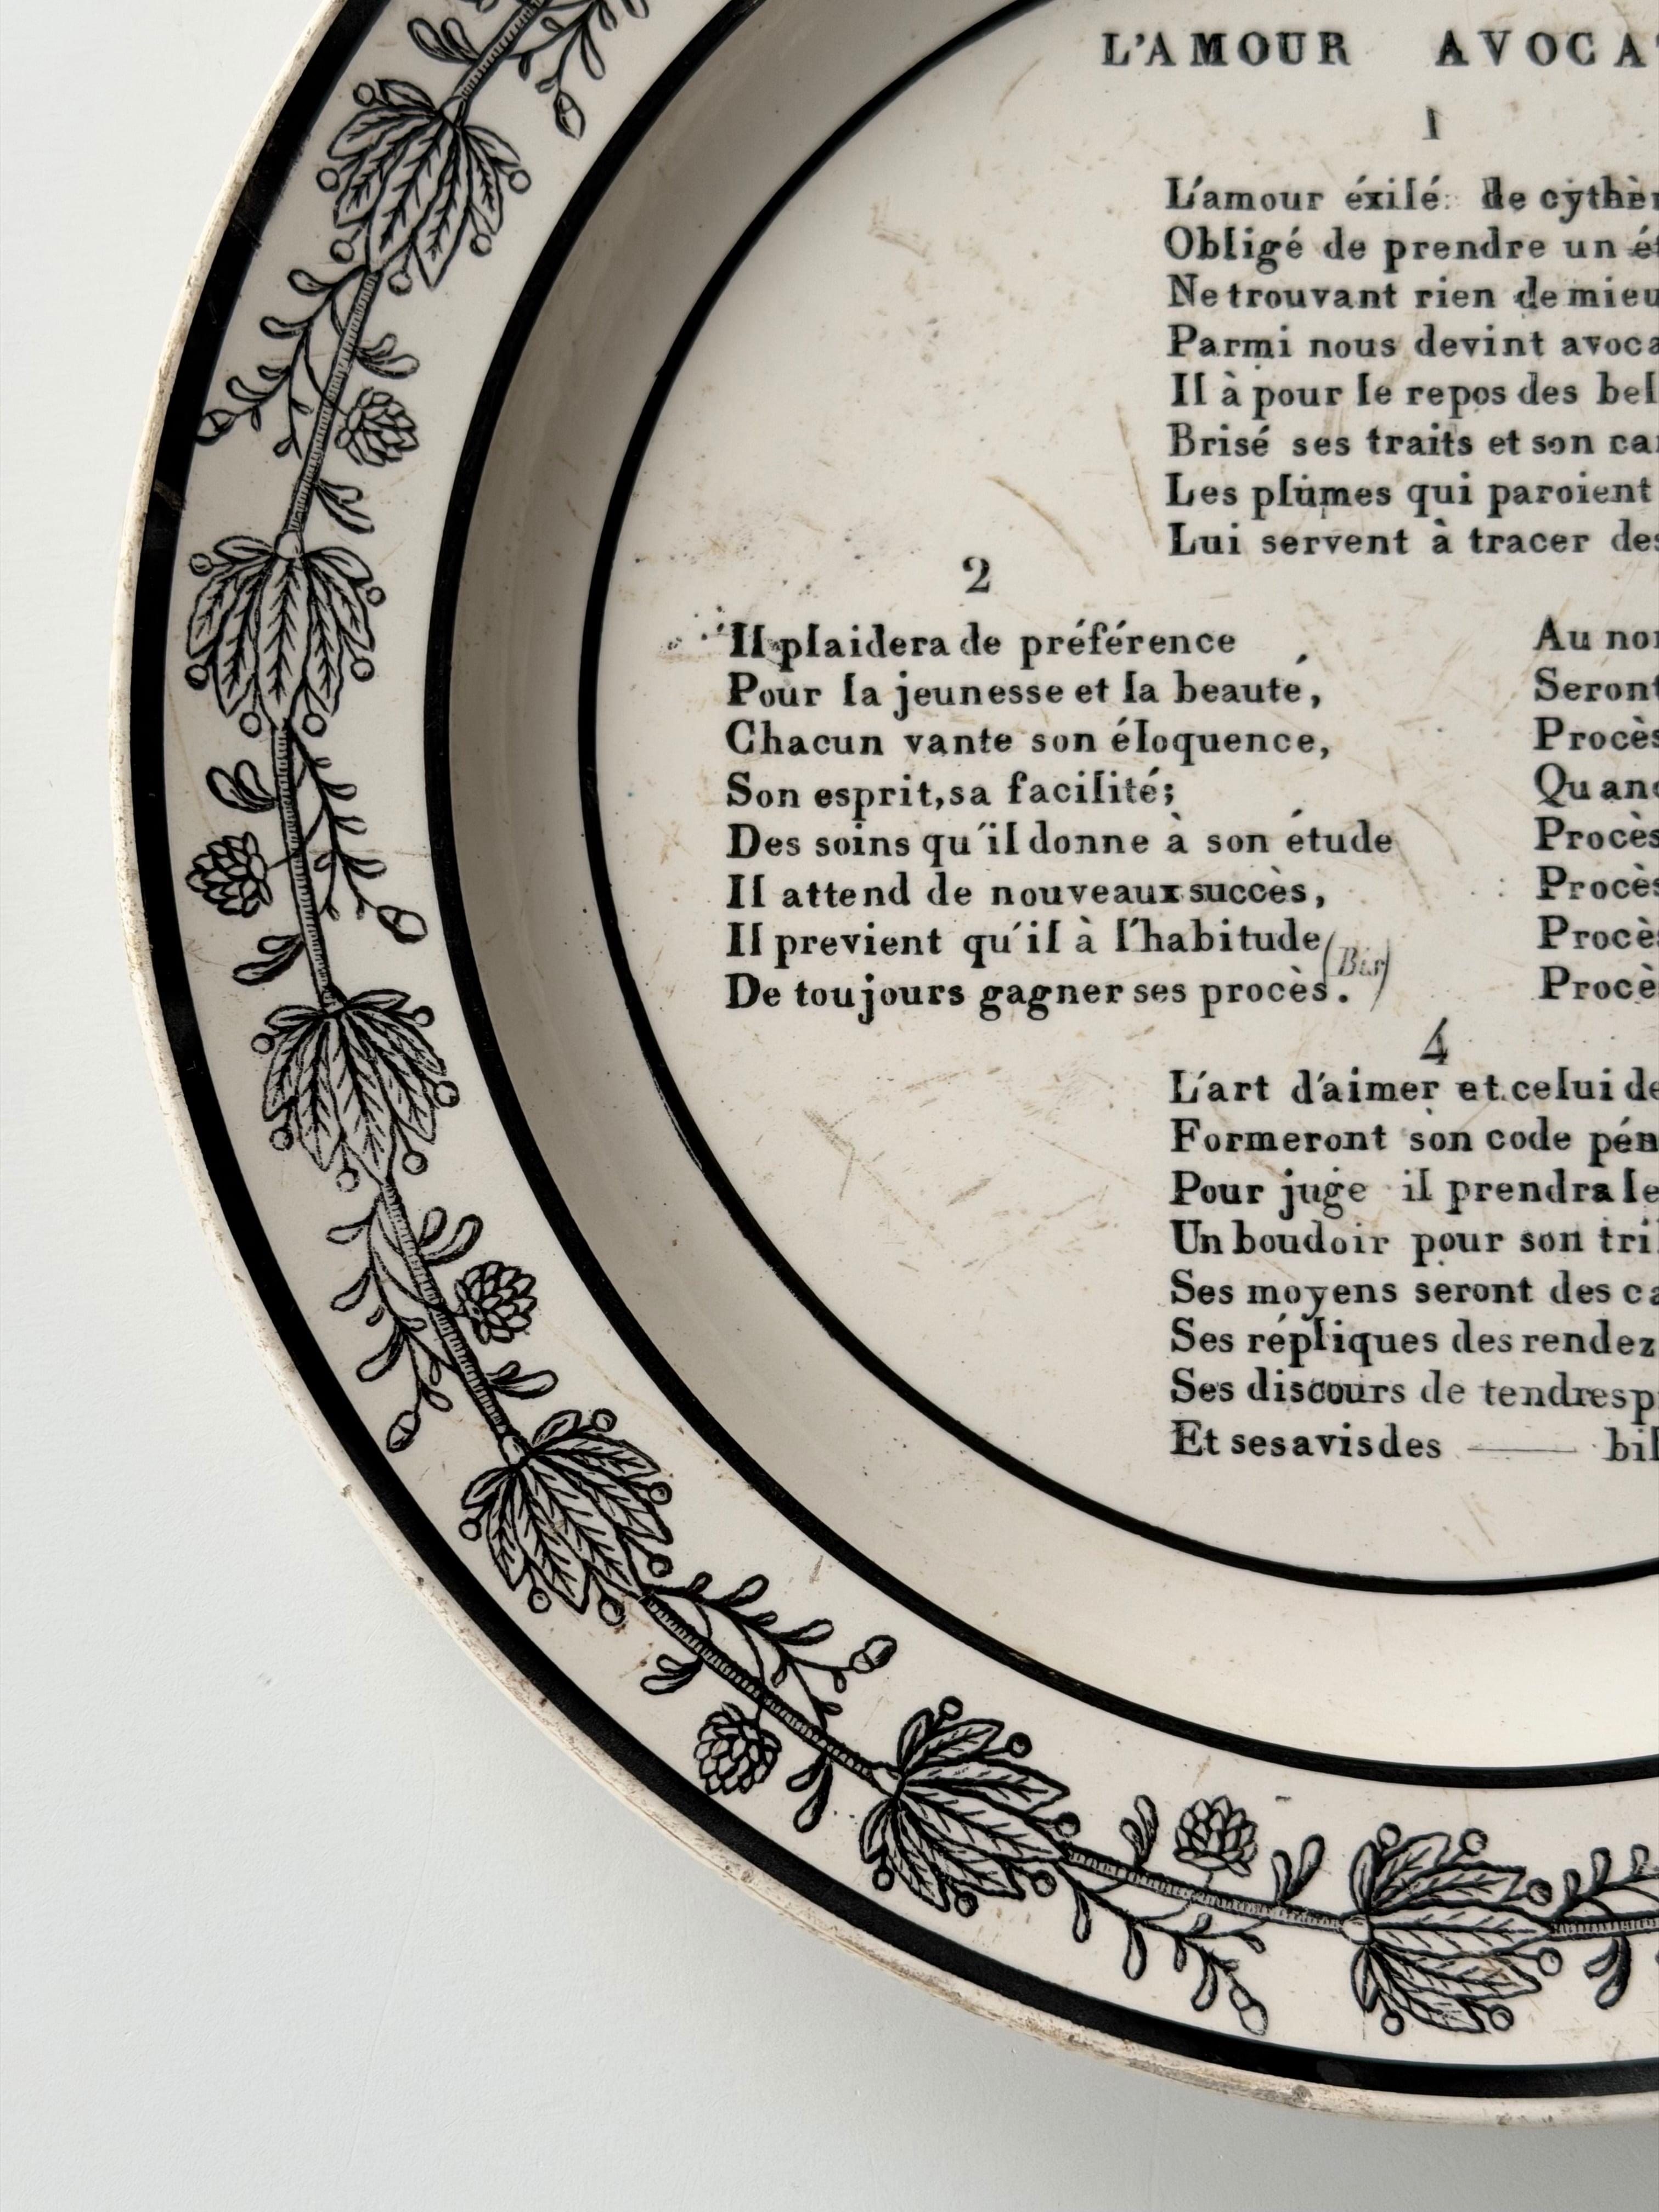 L'AMOUR AVOCA
1
L'amour éxilé de cythèr
Obligé de prendre un ét
Ne trouvant rien de mieu
Parmi nous devint avoca
Il à pour le repos des bel
Brisé ses traits et son car
Les plumes qui paroient
Lui servent à tracer des
2
Il plaidera de préférence
Pour la jeunesse et la beauté,
Chacun vante son éloquence,
Son esprit, sa facilité;
Des soins qu'il donne à son étude
Il attend de nouveaux succès,
Il previent qu'il à l'habitude
De toujours gagner ses procès.
(Bis)
Au nom
Seront
Procès
Quand
Procès
Procès
Procès
Procè
4
L'art d'aimer et celui de
Formeront son code péna
Pour juge il prendra le
Un boudoir pour son tri
Ses moyens seront des ca
Ses répliques des rendez
Ses discours de tendres p
Et ses avis des — bil